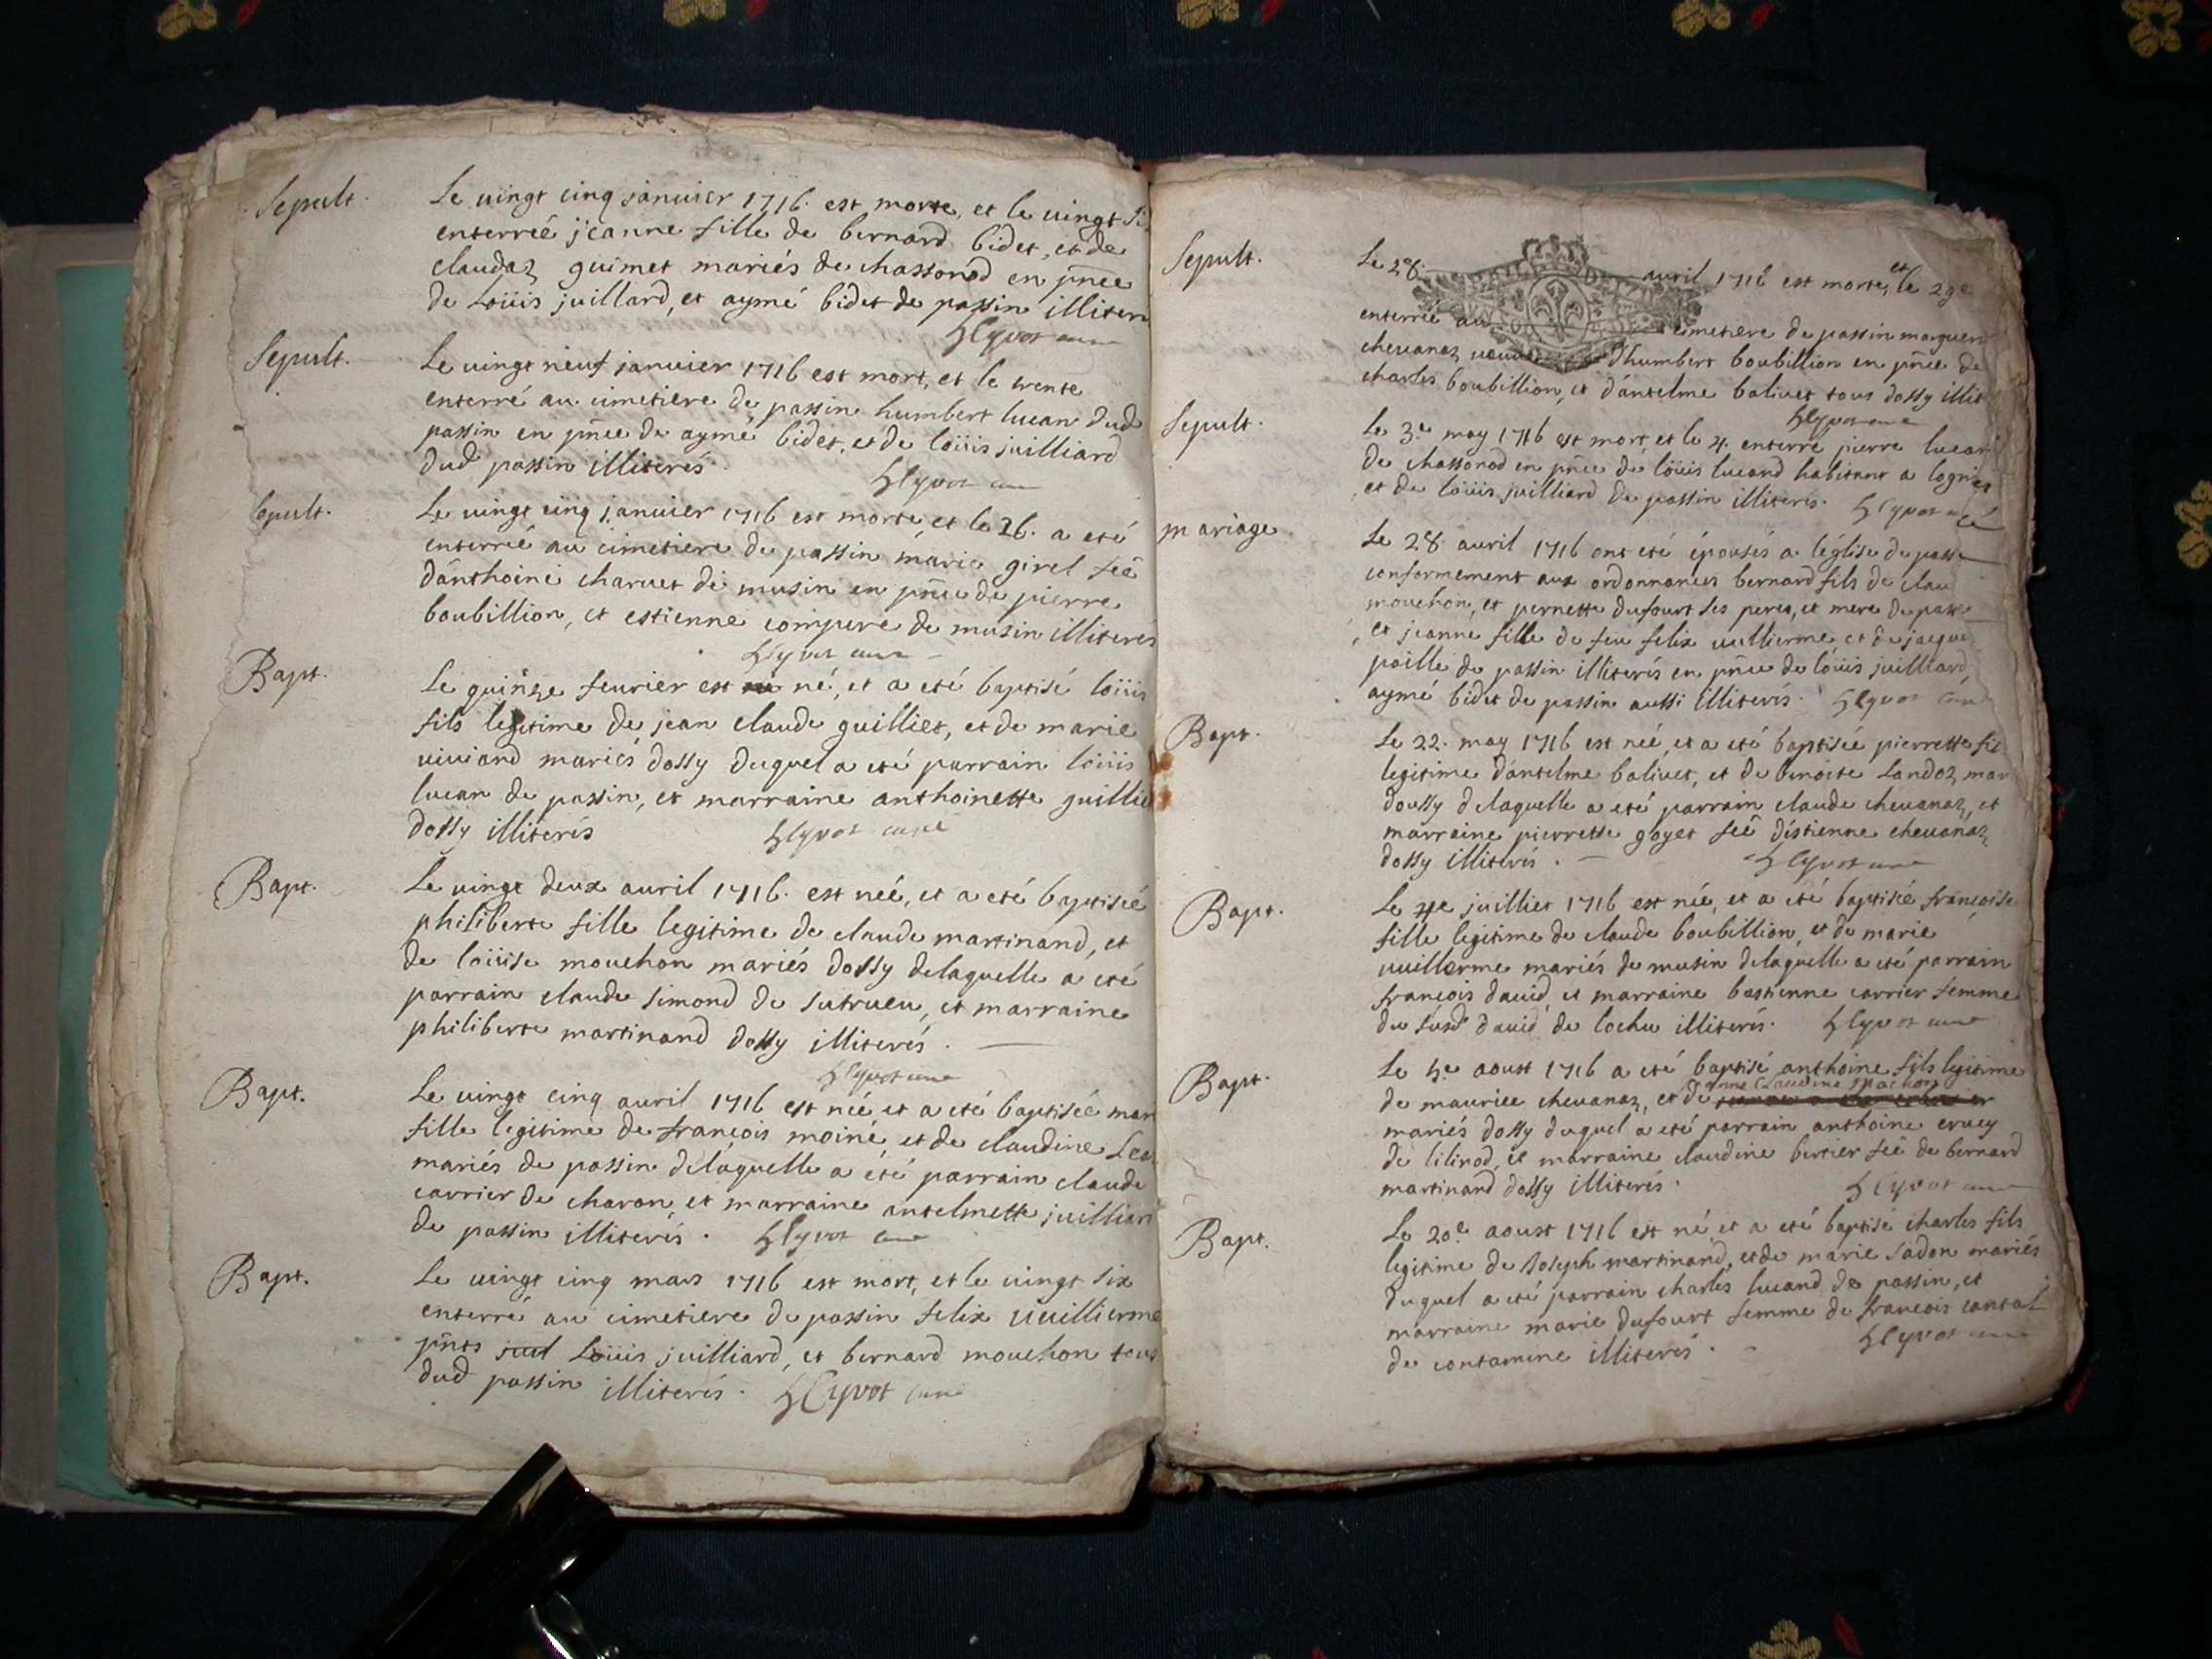 Sepult.
Le vingt cinq janvier 1716. est morte, et le vingt
enterreé jeanne fille de bernard bidet, et de
claudaz guimet mariés de chassonod en pñce
de Loüis juillard, et aymé bidet de passin illiter
Sepult.
Le vingt neuf janvier 1716 est mort, et le trente
enterré au cimetiere de passin humbert lucan dud
passin en pñce de aymé bidet, et de loüis juilliard
dud passin illiterés.
Sepult.
Le vingt cinq janvier 1716 est morte et le 26. a eté
enterreé au cimetiere de passin marie girel feé
d'anthoine charvet de musin en pñce de pierre
boubillion, et estienne compere de musin illiteres
Bapt.
Le quinze fevrier est né, et a eté baptisé loüis
fils legitime de jean claude guilliet, et de marie
viviand mariés dossy duquel a eté parrain loüis
lucan de passin, et marraine anthoinette guillie
dossy illiterés
Bapt.
Le vingt deux avril 1716. est neé, et a eté baptiseé
philiberte fille legitime de claude martinand, et
de loüise mouchon mariés dossy delaquelle a eté
parrain claude simond de sutrieu, et marraine
philiberte martinand dossy illiterés.
Bapt.
Le vingt cinq avril 1716 est neé et a eté baptiseé mar
fille legitime de françois moine et de claudine
mariés de passin delaquelle a été parrain claude
carrier de charon, et marraine antelmette juilliard
de passin illiterés.
Bapt.
Le vingt cinq mars 1716 est mort, et le vingt six
enterré au cimetiere de passin felix vuillierme
pñts Loüis juilliard, et bernard mouchon tous
dud passin illiterés.
Sepult.
Le 28. avril 1716 est morte, et le 29e
enterreé au cimetiere de passin marguer
chevanaz veuve d'humbert boubillion en pñce de
charles boubillion, et d'antelme balivet tous dossy illit
Sepult.
Le 3.e may 1716 est mort, et le 4. enterré pierre lucan
de chassonod en pñce de loüis lucand habitant a
et de loüis juilliard de passin illiterés.
mariage
Le 28 avril 1716 ont eté épousés a l'église de pass
conformement aux ordonnances bernard fils de clau
mouchon, et pernette dufourt ses peres, et mere de pass
et jeanne fille de feu felix vullierme et de jacque
paille de passin illiterés en pñce de loüis juilliard
aymé bidet de passin aussi illiterés.
Bapt.
Le 22. may 1716 est neé, et a eté baptiseé pierrette fil
legitime d'antelme balivet, et de benoite Landoz mar
doussy delaquelle a eté parrain claude chevanaz, et
marraine pierrette goyet feé d'estienne chevanaz
dossy illiterés.
Bapt.
Le 4e juilliet 1716 est neé, et a eté baptiseé françoise
fille legitime de claude boubillion, et de marie
vuillerme mariés de musin delaquelle a eté parrain
françois david, et marraine bastienne carrier femme
du susd david de lochu illiterés.
Bapt.
Le aoust 1716 a eté baptisé anthoine fils legitime
de maurice chevanaz, et de
mariés dossy duquel a eté parrain anthoine
de lilinod, et marraine claudine bertier feé de bernard
martinand dossy illiterés.
Bapt.
Le 20.e aoust 1716 est né et a eté baptisé charles fils
legitime de Joseph martinand, et de marie sadon mariés
duquel a eté parrain charles lucand de passin, et
marraine marie dufourt femme de françois
de contamine illiterés.